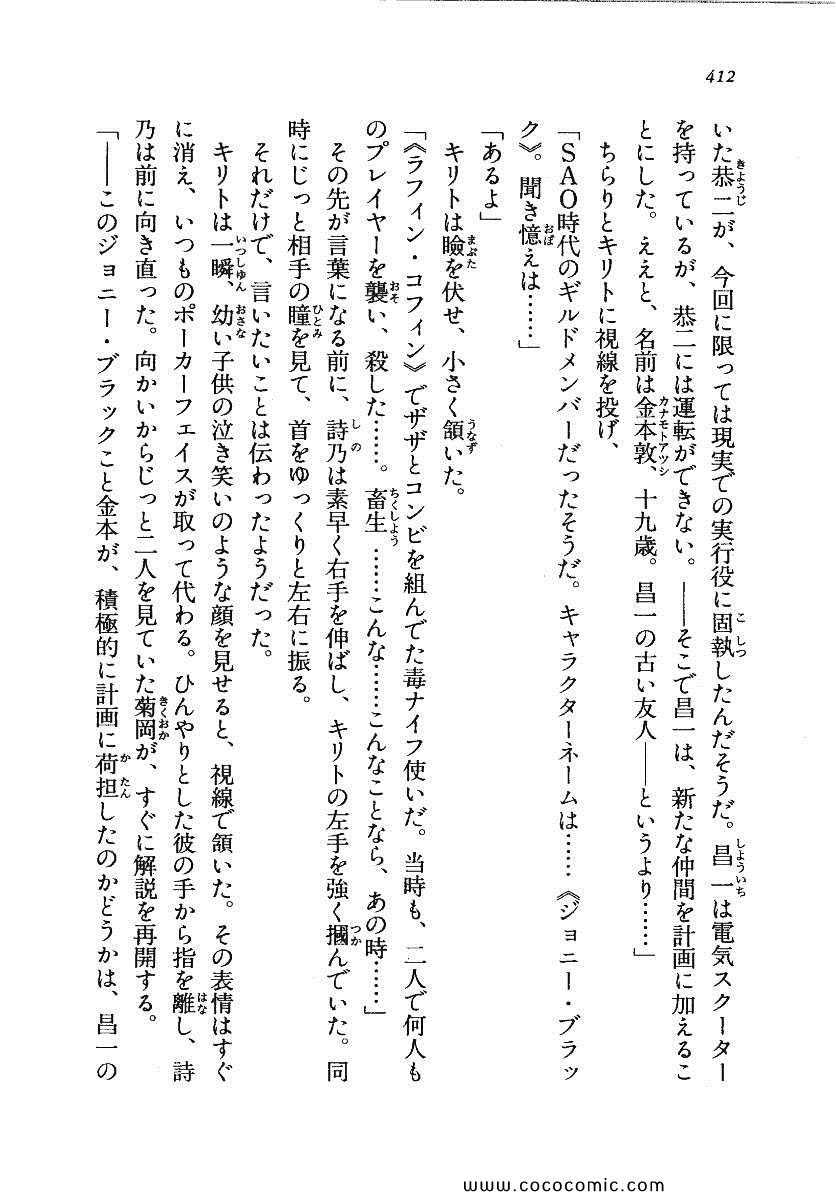 412
いた恭二が、今回に限っては現実での実行役に固執したんだそうだ。昌一は電気スクーター
を持っているが、恭二には運転ができない。――そこで昌一は、新たな仲間を計画に加えるこ
とにした。ええと、名前は金本敦、十九歳。昌一の古い友人――というより……」
ちらりとキリトに視線を投げ、
「SAO時代のギルドメンバーだったそうだ。キャラクターネームは……《ジョニー・ブラッ
ク》。聞き憶えは……」
「あるよ」
キリトは瞼を伏せ、小さく頷いた。
「《ラフィン・コフィン》でザザとコンビを組んでた毒ナイフ使いだ。当時も、二人で何人も
のプレイヤーを襲い、殺した……。畜生……こんな……こんなことなら、あの時……」
その先が言葉になる前に、詩乃は素早く右手を伸ばし、キリトの左手を強く摑んでいた。同
時にじっと相手の瞳を見て、首をゆっくりと左右に振る。
それだけで、言いたいことは伝わったようだった。
キリトは一瞬、幼い子供の泣き笑いのような顔を見せると、視線で頷いた。その表情はすぐ
に消え、いつものポーカーフェイスが取って代わる。ひんやりとした彼の手から指を離し、詩
乃は前に向き直った。向かいからじっと二人を見ていた菊岡が、すぐに解説を再開する。
「――このジョニー・ブラックこと金本が、積極的に計画に荷担したのかどうかは、昌一の
www.cococomic.com